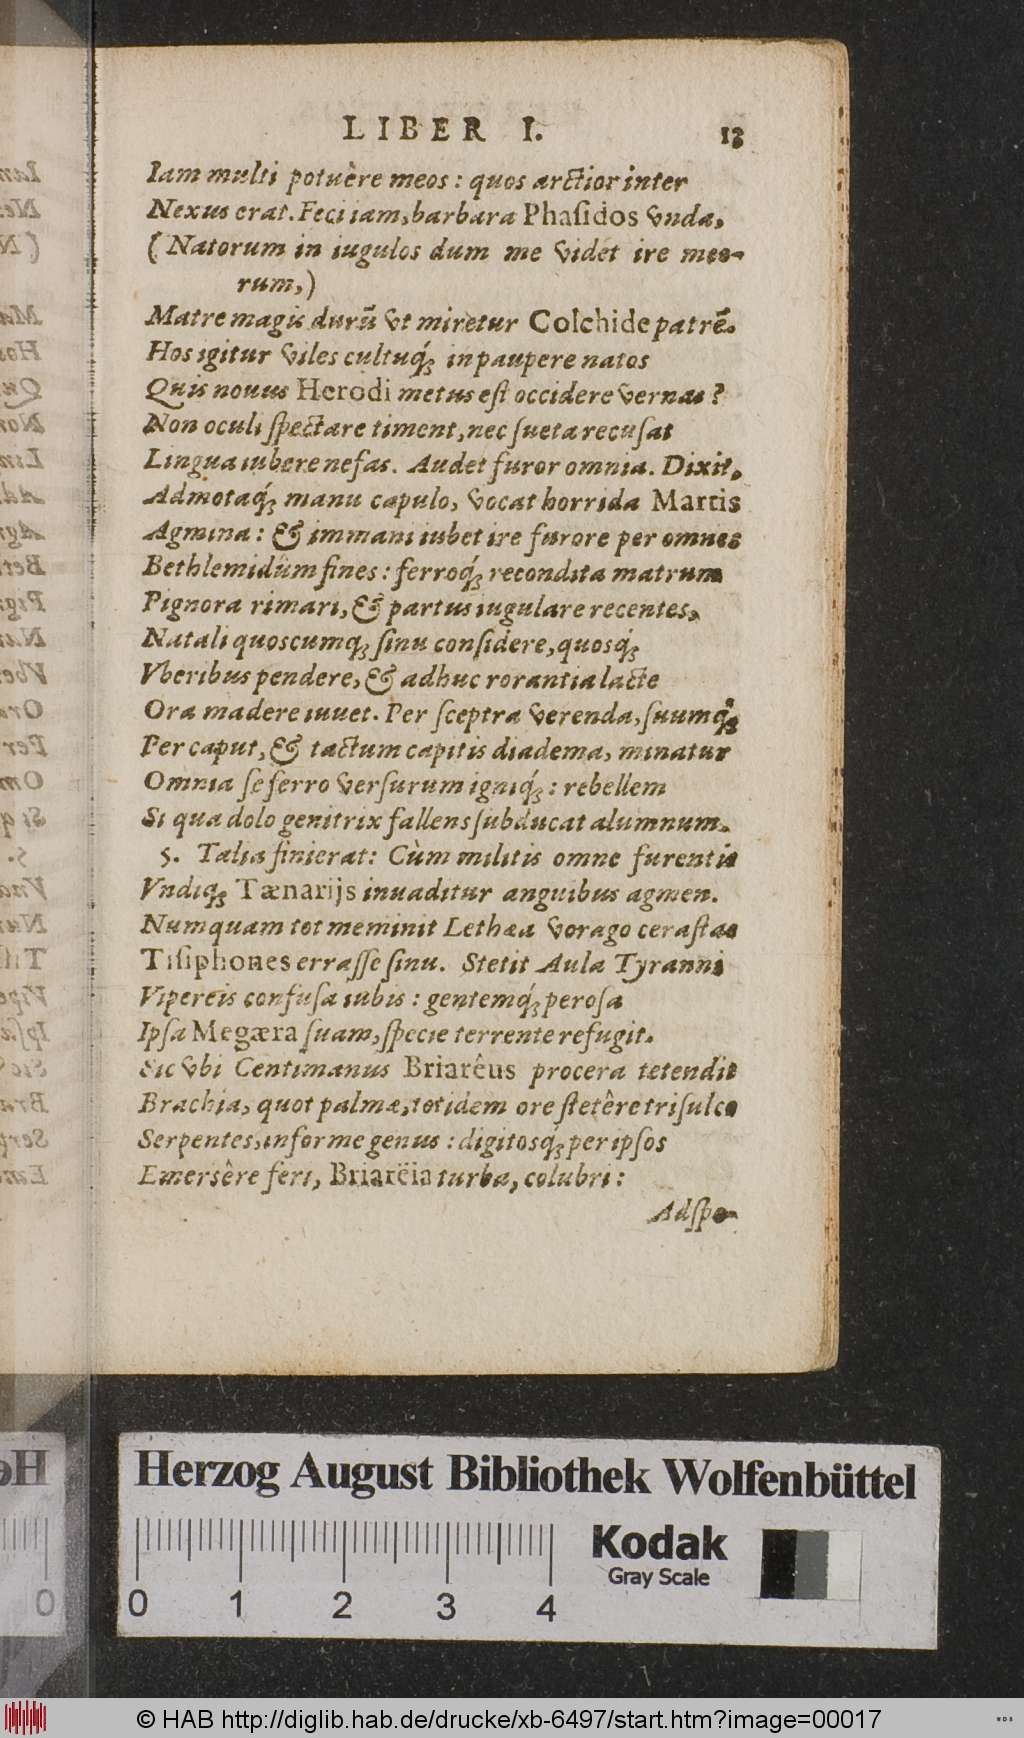 LIBER I. 13
Iam multi potuêre meos: quos arctior inter
Nexus erat. Feci iam, barbara Phaſidos vnda,
(Natorum in iugulos dum me videt ire meo-
rum,)
Matre magis durũ vt miretur Colchide patrẽ.
Hos igitur viles cultuq́ꝫ in paupere natos
Quis nouus Herodi metus eſt occidere vernas?
Non oculi ſpectare timent, nec ſueta recuſat
Lingua iubere nefas. Audet furor omnia. Dixit,
Admotaq́ꝫ manu capulo, vocat horrida Martis
Agmina: & immani iubet ire furore per omnes
Bethlemidûm fines: ferroq́ꝫ recondita matrum
Pignora rimari, & partus iugulare recentes,
Natali quoscumqꝫ ſinu conſidere, quosq́ꝫ
Vberibus pendere, & adhuc rorantia lacte
Ora madere iuuet. Per ſceptra verenda, ſuumq́ꝫ
Per caput, & tactum capitis diadema, minatur
Omnia ſe ferro verſurum igniq́ꝫ: rebellem
Si qua dolo genitrix fallens ſubducat alumnum.
5. Talia finierat: Cùm militis omne furentis
Vndiqꝫ Tænarijs inuaditur anguibus agmen.
Numquam tot meminit Lethæa vorago ceraſtas
Tiſiphones erraſſe ſinu. Stetit Aula Tyranni
Vipereis confuſa iubis: gentemq́ꝫ peroſa
Ipſa Megæra ſuam, ſpecie terrente refugit.
Sic vbi Centimanus Briarêus procera tetendit
Brachia, quot palmæ, totidem ore ſtetêre triſulco
Serpentes, informe genus: digitosq́ꝫ per ipſos
Emersêre feri, Briarëia turba, colubri:
Adſpe-
Herzog August Bibliothek Wolfenbüttel
0 1 2 3 4
Kodak
Gray Scale
© HAB http://diglib.hab.de/drucke/xb-6497/start.htm?image=00017